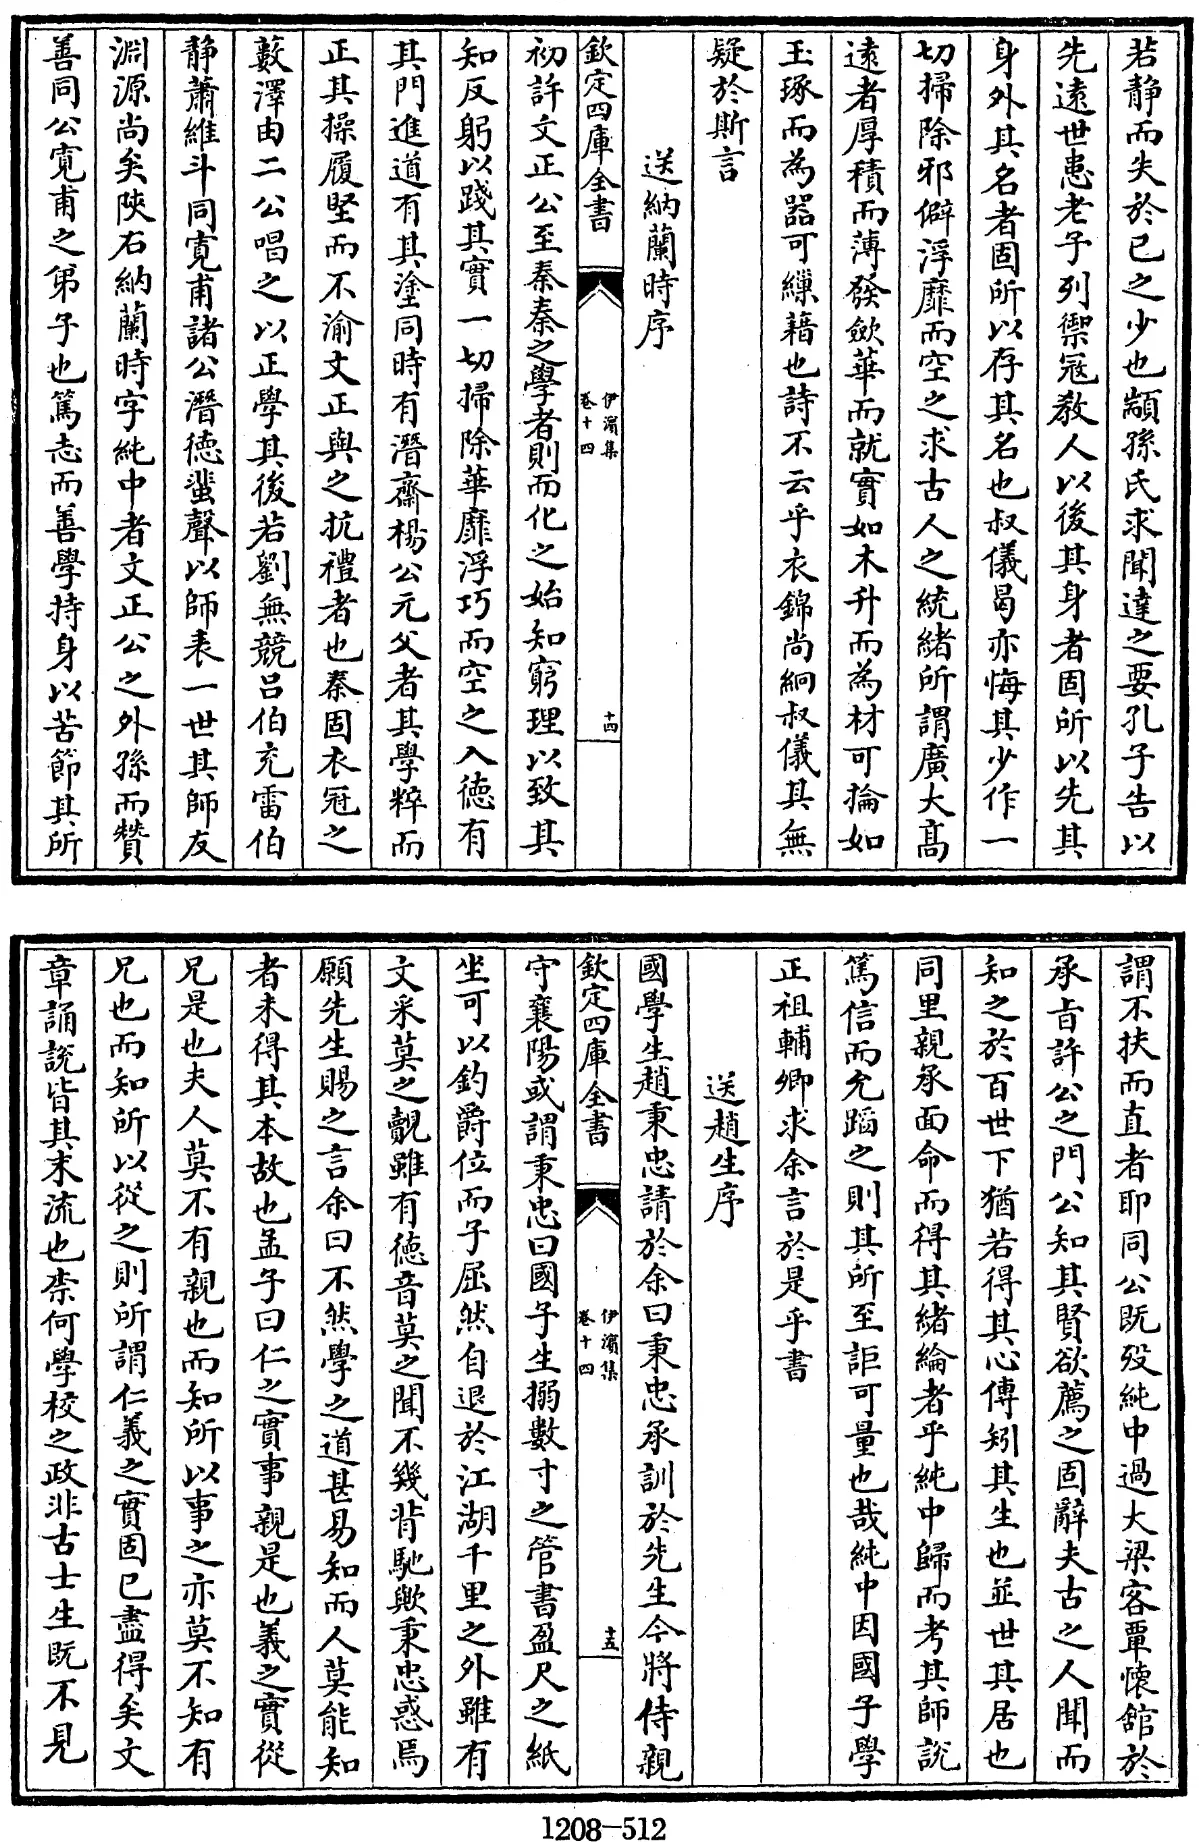 若静而失於已之少也顓孫氏求聞達之要孔子告以
先逺世患老子列禦冦教人以後其身者固所以先其
身外其名者固所以存其名也叔儀曷亦悔其少作一
切掃除邪僻浮靡而空之求古人之統緒所謂廣大髙
逺者厚積而薄發歛華而就實如木升而為材可掄如
玉琢而為器可繅藉也詩不云乎衣錦尚絅叔儀其無
疑於斯言
送納蘭時序
欽定四庫全書
伊濵集
卷十四
十四
初許文正公至秦秦之學者則而化之始知窮理以致其
知反躬以踐其實一切掃除華靡浮巧而空之入徳有
其門進道有其塗同時有潛齋楊公元父者其學粹而
正其操履堅而不渝文正與之抗禮者也秦固衣冠之
藪澤由二公唱之以正學其後若劉無競吕伯充雷伯
静蕭維斗同寛甫諸公潛徳蜚聲以師表一世其師友
淵源尚矣陜右納蘭時字純中者文正公之外孫而贊
善同公寛甫之弟子也篤志而善學持身以苦節其所
謂不扶而直者耶同公既殁純中過大梁客覃懐館於
承㫖許公之門公知其賢欲薦之固辭夫古之人聞而
知之於百世下猶若得其心傳矧其生也並世其居也
同里親承面命而得其緒綸者乎純中歸而考其師説
篤信而允蹈之則其所至詎可量也哉純中因國子學
正祖輔卿求余言於是乎書
送趙生序
國學生趙秉忠請於余曰秉忠承訓於先生今將侍親
欽定四庫全書
伊濵集
卷十四
十五
守襄陽或謂秉忠曰國子生搦數寸之管書盈尺之紙
坐可以釣爵位而子屈然自退於江湖千里之外雖有
文采莫之覿雖有徳音莫之聞不幾背馳歟秉忠惑焉
願先生賜之言余曰不然學之道甚易知而人莫能知
者未得其本故也孟子曰仁之實事親是也義之實從
兄是也夫人莫不有親也而知所以事之亦莫不知有
兄也而知所以從之則所謂仁義之實固已盡得矣文
章誦説皆其末流也柰何學校之政非古士生既不見
1208-512